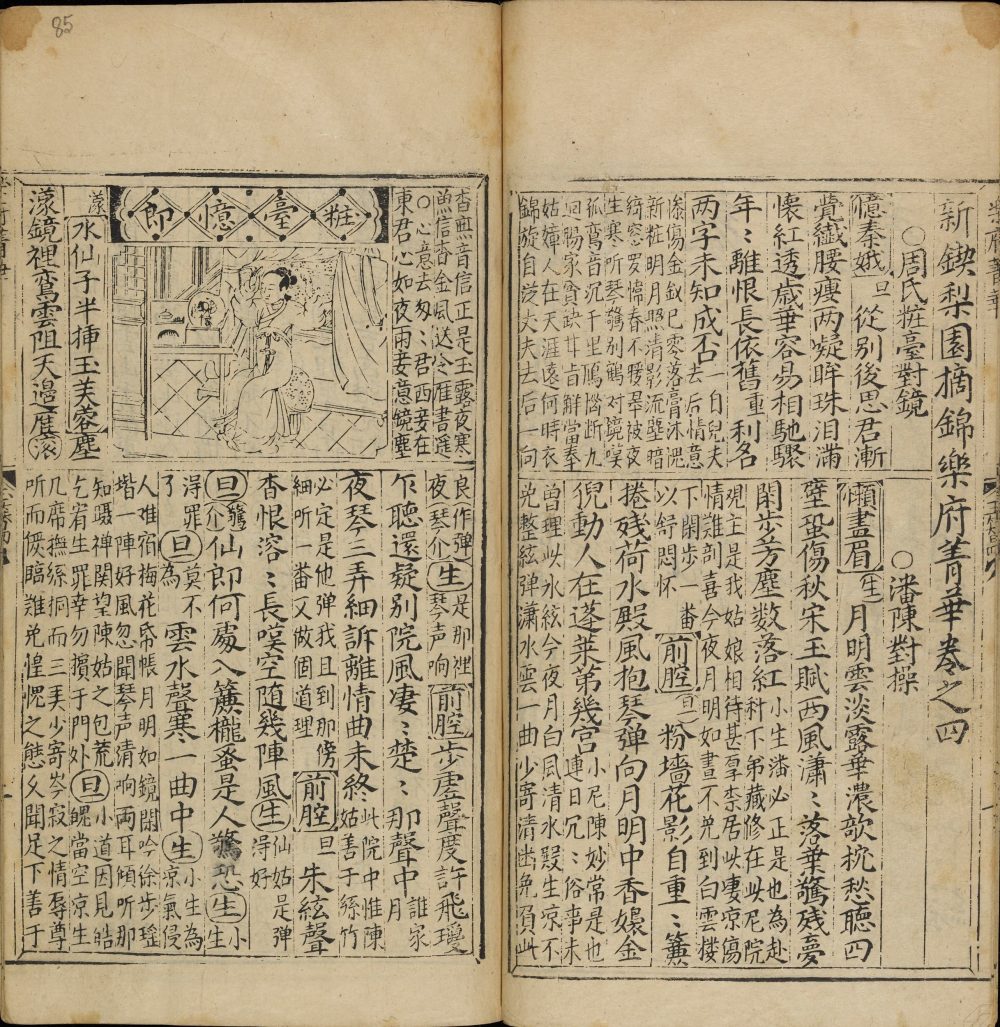 新鍥梨園摘錦樂府菁華卷之四
○周氏粧臺對鏡
憶秦娥 旦 從別後思君漸
覺纖腰瘦两凝眸珠泪滿
懷紅透歲華容易相馳驟
年〻離恨長依舊重利名
两字未知成否 一自兒夫去后情意
惨傷金釵已零落膏沐
新粧明月照清影流塵暗
綺窓罗幃春不暖翠被夜
生寒所琴驚別鶴对境嘆
孤鸾音沉千里鴈惱断九
囬腸家貧缺甘旨鮮當奉
姑嫜人在天涯遠何時衣
錦旋自從丈夫去后一向
杳無音信正是玉露夜寒
魚信杳金風送冷雁書遥
○心意去匆〻君西妾在
東君心如夜雨妾意鏡塵
粧臺憶郎
濛 水仙子半揷玉芙蓉塵
濛鏡裡鸾雲阻天邉雁 滚
○潘陳對操
懶畫眉 生 月明雲淡露華濃歆枕愁聽四
壁蛩傷秋宋玉賦西風瀟〻落葉驚殘夢
閑步芳塵数落紅 小生潘必正是也為赴科下弟藏修在此尼院
覌主是我姑娘相待甚厚柰居此凄凉傷
情難剖喜今夜月明如晝不免到白雲楼
下閑步一番以舒悶怀 前腔 旦 粉墻花影自重〻簾
捲残荷水殿風抱琴弹向月明中香嬝金
猊動人在蓬莱第幾宫 小尼陳妙常是也連日冗〻俗事未
曾理此氷絃今夜月白風清水殿生凉不
免整絃弹瀟水雲一曲少寄清幽免負此
良夜琴介 作弹 生 是那裡琴声响 前腔 步虚聲度許飛瓊
乍聽還疑别院風凄〻楚〻那聲中 誰家月
夜琴三弄細訴離情曲未終 此院中惟陳姑善于絲竹
必定是他弹我且到那傍
細听一畨又做個道理 前腔 旦 朱絃聲
杳恨溶〻長嘆空随幾陣風 生 仙姑是弹得好
旦 驚介 仙郎何處入簾櫳蚤是人驚恐 生 小生
得罪了莫不 旦 為 雲水聲寒一曲中 生 小生為凉氣侵
人难宿梅花帋帳月明如鏡閑吟徐步瑶
堦一陣好風忽聞琴声清响两耳傾听那
知蹑禅関望陳姑之包荒 旦 小道因見皓
乞宥生罪幸勿擯于門外 魄當空凉生
几席撫絲桐而三美少寄岑寂之情辱尊
听而偎臨难免惶愧之態乆聞足下善于